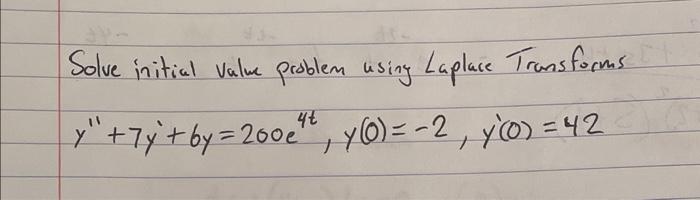 Solve initial value problem using Laplace Transforms
y'' + 7y' + 6y = 200e^{4t}, y(0) = -2, y'(0) = 42